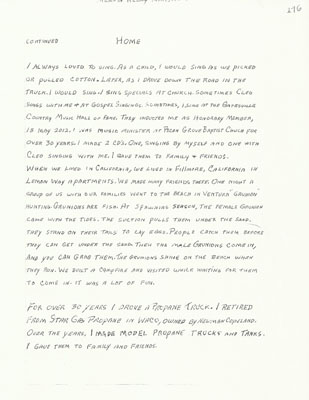 276
CONTINUED HOME
I ALWAYS LOVED TO SING. AS A CHILD, I WOULD SING AS WE PICKED
OR PULLED COTTON. LATER, AS I DROVE DOWN THE ROAD IN THE
TRUCK. I WOULD SING SPECIALS AT CHURCH. SOMETIMES CLEO
SONGS WITH ME AT GOSPEL SINGINGS. SOMETIMES, I SING AT THE GATESVILLE
COUNTRY MUSIC HALL OF FAME. THEY INDUCTED ME AS HONORARY MEMBER,
18 MAY 2013. I WAS MUSIC MINISTER AT PECAN GROVE BAPTIST CHURCH FOR
OVER 30 YEARS. I MADE 2 CD'S. ONE, SINGING BY MYSELF AND ONE WITH
CLEO SINGING WITH ME. I GAVE THEM TO FAMILY & FRIENDS.
WHEN WE LIVED IN CALIFORNIA, WE LIVED IN FILLMORE, CALIFORNIA IN
LEMON WAY APARTMENTS. WE MADE MANY FRIENDS THERE. ONE NIGHT A
GROUP OF US WITH OUR FAMILIES WENT TO THE BEACH IN VENTURA "GRUNION"
HUNTING. GRUNIONS ARE FISH. AT SPAWNING SEASON, THE FEMALE GRUNION
COME WITH THE TIDES. THE SUCTION PULLS THEM UNDER THE SAND.
THEY STAND ON THEIR TAILS TO LAY EGGS. PEOPLE CATCH THEM BEFORE
THEY CAN GET UNDER THE SAND. THEN THE MALE GRUNIONS COME IN,
AND YOU CAN GRAB THEM. THE GRUNIONS SHINE ON THE BEACH WHEN
THEY RUN. WE BUILT A CAMPFIRE AND VISITED WHILE WAITING FOR THEM
TO COME IN. IT WAS A LOT OF FUN.
FOR OVER 30 YEARS I DROVE A PROPANE TRUCK. I RETIRED
FROM STAR GAS PROPANE IN WACO, OWNED BY NEWMAN COPELAND.
OVER THE YEARS, I MADE MODEL PROPANE TRUCKS AND TANKS.
I GAVE THEM TO FAMILY AND FRIENDS.